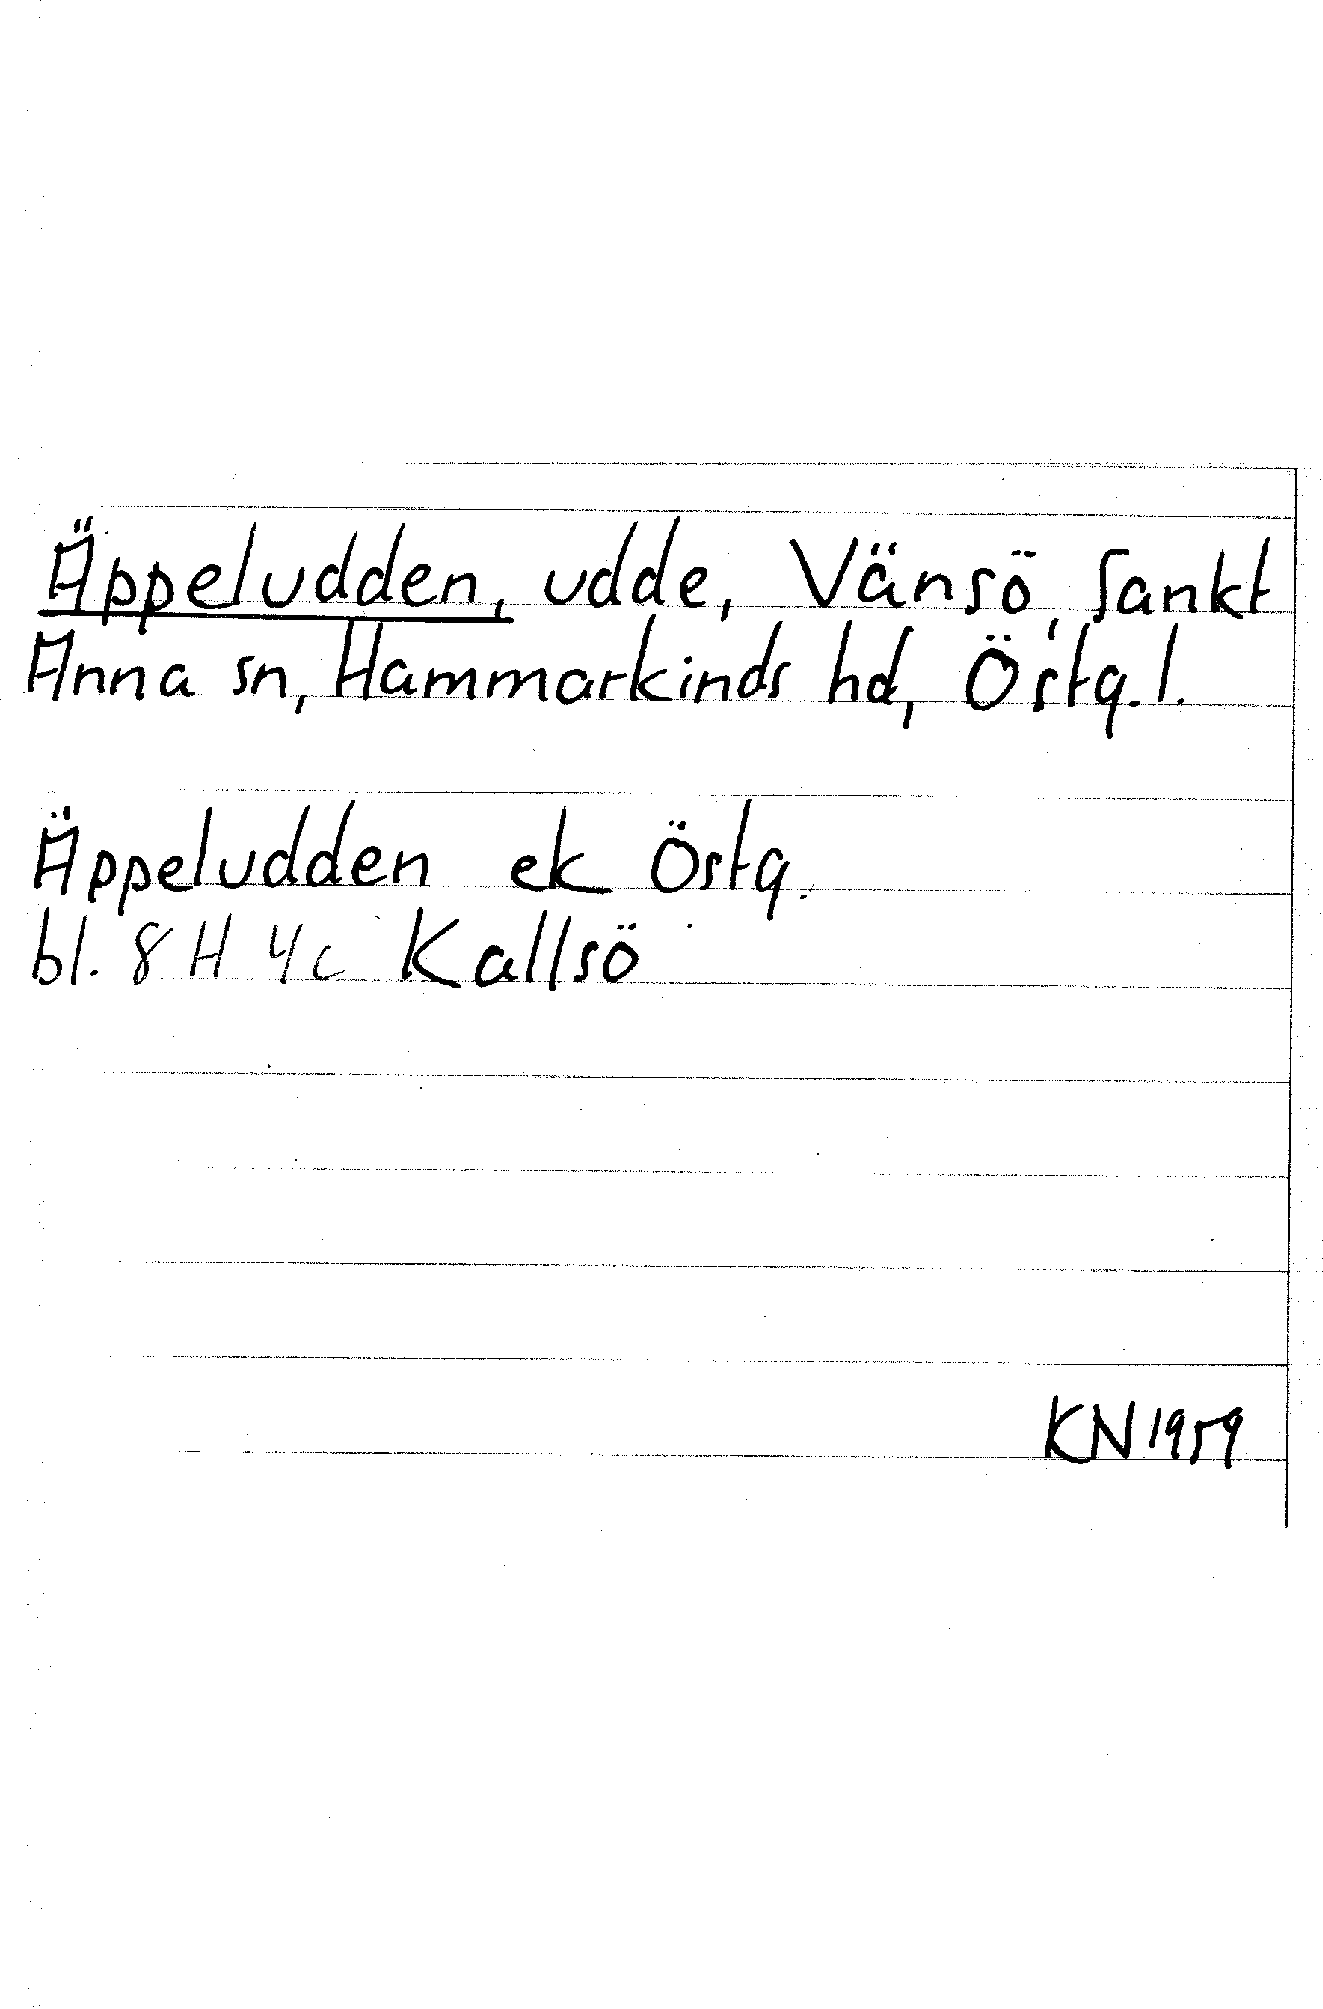 Äppeludden, udde, Vänsö, Sankt
Anna sn, Hammarkinds hd, Östg. l.
Äppeludden ek Östg.
bl. 8 H 4c Kallsö
KN 1959